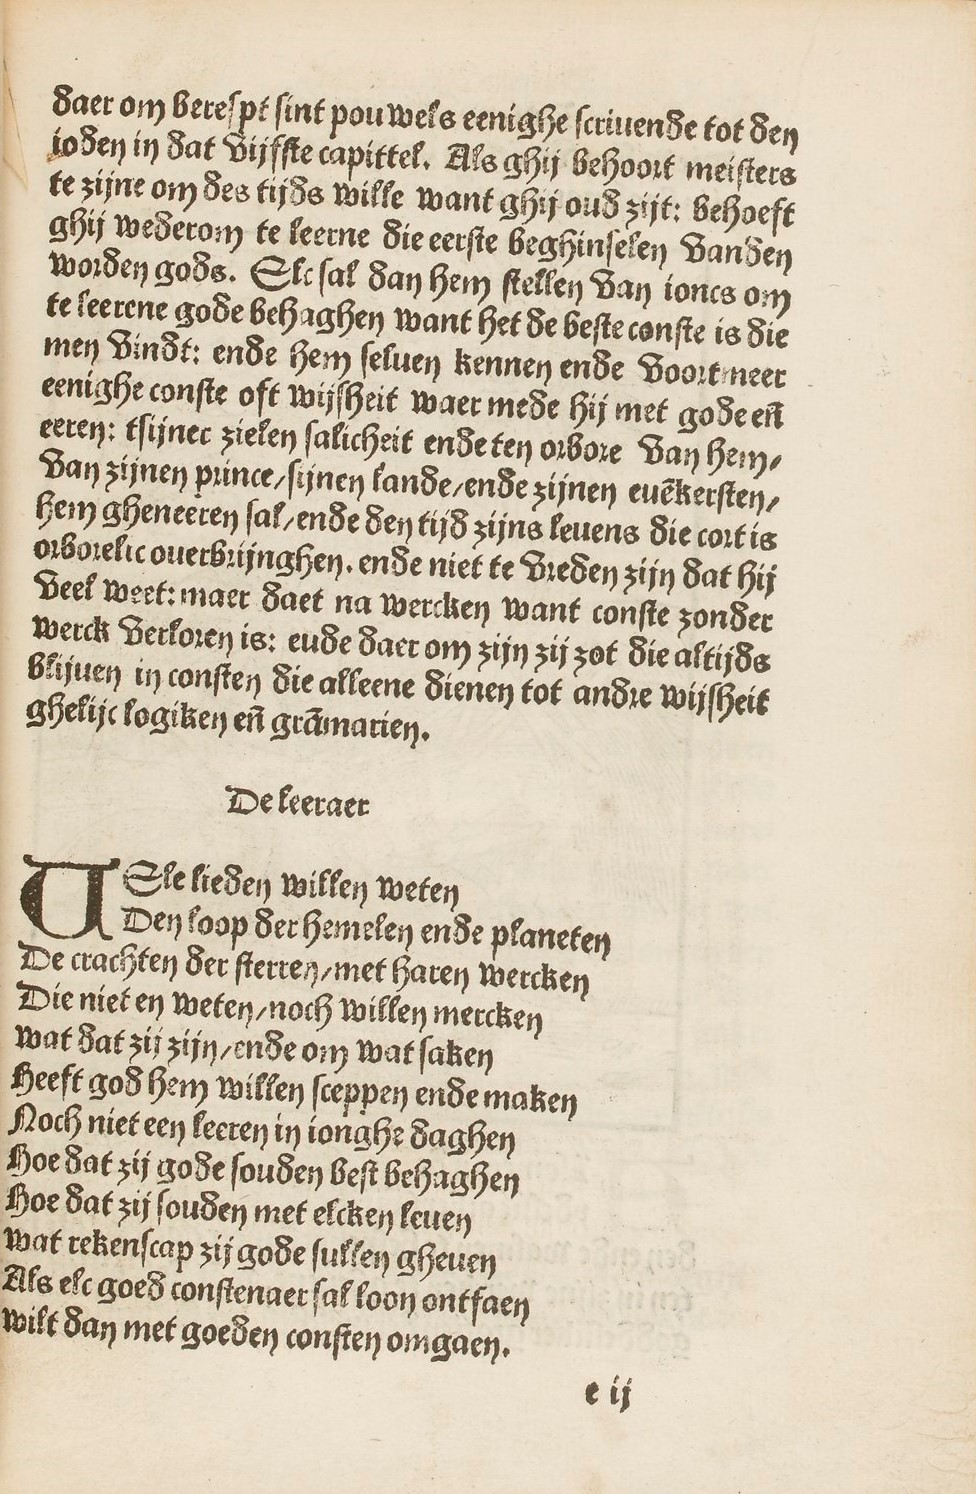 daer om berespt sint pouwels eenighe scriuende tot den
ioden in dat vijfste capittel. Als ghij behoort meisters
te zijne om des tijds wille want ghij oud zijt: behoeft
ghij wederom te leerne die eerste beghinselen vanden
worden gods. Elc sal dan hem stellen van ioncs om
te leerene gode behaghen want het de beste conste is die
men vindt: ende hem seluen kennen ende voortmeer
eenighe conste oft wijsheit waer mede hij met gode eñ
eeren: tsijner zielen salicheit ende ten orbore van hem/
van zijnen prince/sijnen lande/ende zijnen euẽkersten/
hem gheneeren sal/ende den tijd zijns leuens die cort is
orborelic ouerbrijnghen. ende niet te vreden zijn dat hij
veel weet: maer daet na wercken want conste zonder
werck verloren is: eude daer om zijn zij zot die altijds
blijuen in consten die alleene dienen tot andre wijsheit
ghelijc logiken eñ grãmarien.
De leeraer
VEle lieden willen weten
Den loop der hemelen ende planeten
De crachten der sterren/met haren wercken
Die niet en weten/noch willen mercken
wat dat zij zijn/ende om wat saken
Heeft god hem willen sceppen ende maken
Noch niet een leeren in ionghe daghen
Hoe dat zij gode souden best behaghen
Hoe dat zij souden met elcken leuen
wat rekenscap zij gode sullen gheuen
Als elc goed constenaer sal loon ontfaen
wilt dan met goeden consten omgaen.
e ij